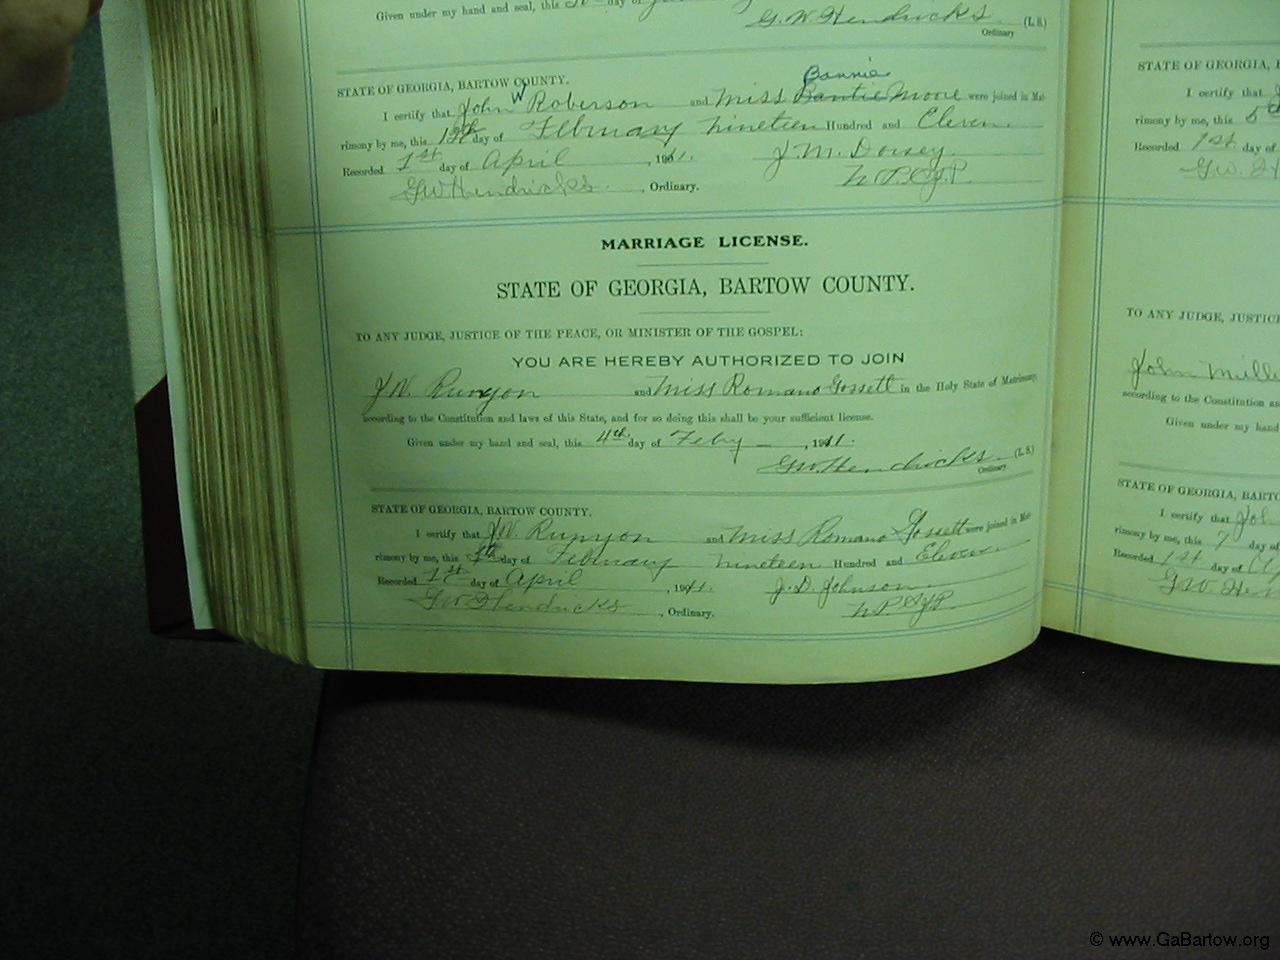 Given under my hand and seal, this day of
G. W. Hendricks (L. S.)
Ordinary
STATE OF GEORGIA, BARTOW COUNTY.
Bannie
I certify that John W Roberson and Miss Bantie Moore were joined in Mat-
rimony by me, this 12th day of February Nineteen Hundred and Eleven.
Recorded 1st day of April, 1911. J. M. Dorsey.
G W Hendricks, Ordinary. N. P. & J. P.
MARRIAGE LICENSE.
STATE OF GEORGIA, BARTOW COUNTY.
TO ANY JUDGE, JUSTICE OF THE PEACE, OR MINISTER OF THE GOSPEL:
YOU ARE HEREBY AUTHORIZED TO JOIN
J. N. Runyon and Miss Romano Gossett in the Holy State of Matrimony,
according to the Constitution and laws of this State, and for so doing this shall be your sufficient license.
Given under my hand and seal, this 4th day of Feby, 1911.
G W Hendricks (L. S.)
Ordinary.
STATE OF GEORGIA, BARTOW COUNTY.
I certify that J. N. Runyon and Miss Romano Gossett were joined in Mat-
rimony by me, this day of February Nineteen Hundred and Eleven.
Recorded 1st day of April, 1911. J. D. Johnson
G W Hendricks, Ordinary. N. P. & J. P.
STATE OF GEORGIA,
I certify that
rimony by me, this 5th
Recorded 1st day of
G. W.
TO ANY JUDGE, JUSTICE
John
according to the Constitution
Given under my hand
STATE OF GEORGIA, BARTO
I certify that John
rimony by me, this 7 day of
Recorded 1st day of
G W. Hen
© www.GaBartow.org